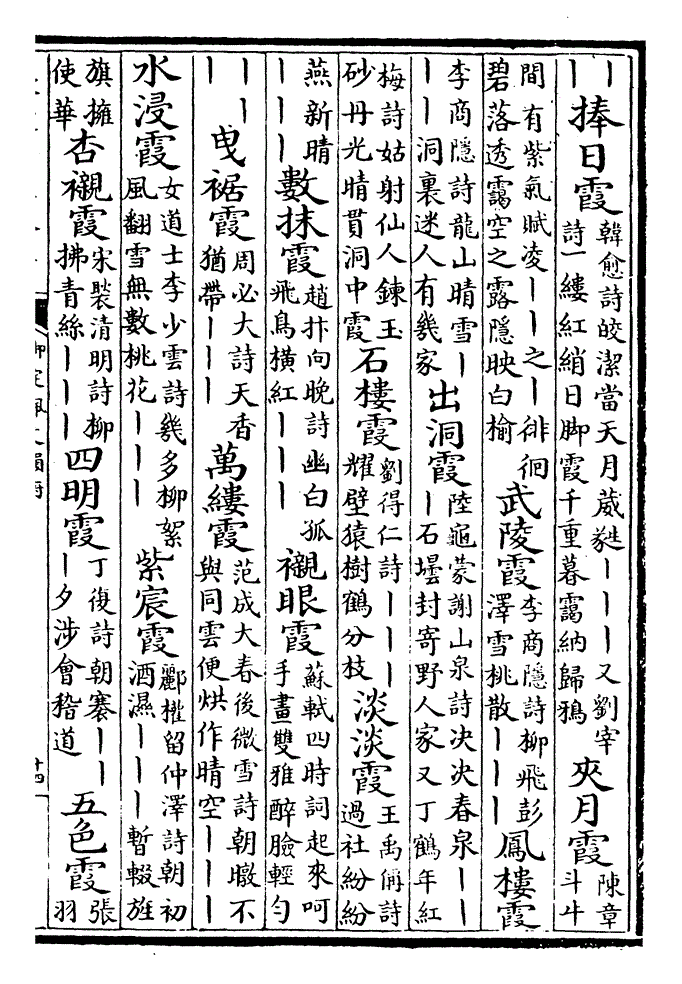 ｜｜捧日霞韓愈詩皎潔當天月葳蕤｜｜｜又劉宰詩一縷紅綃日脚霞千重暮靄納歸鴉夾月霞陳章斗牛
間有紫氣賦凌｜｜之｜徘徊碧落透靄空之露隱映白榆武陵霞李商隱詩柳飛彭澤雪桃散｜｜｜鳳樓霞
李商隱詩龍山晴雪｜｜｜洞裏迷人有幾家出洞霞陸龜蒙謝山泉詩決決春泉｜｜｜石壜封寄野人家又丁鶴年紅
梅詩姑射仙人鍊玉砂丹光晴貫洞中霞石樓霞劉得仁詩｜｜｜耀壁猿樹鶴分枝淡淡霞王禹偁詩過社紛紛
燕新晴｜｜｜數抹霞趙抃向晚詩幽白孤飛鳥橫紅｜｜｜襯眼霞蘇軾四時詞起來呵手畫雙雅醉臉輕勻
｜｜｜｜曳裾霞周必大詩天香猶帶｜｜｜萬縷霞范成大春後微雪詩朝暾不與同雲便烘作晴空｜｜｜
水浸霞女道士李少雲詩幾多柳絮風翻雪無數桃花｜｜｜紫宸霞酈權留仲澤詩朝初酒濕｜｜｜暫輟旌
旗擁使華杏襯霞宋褧清明詩柳拂青絲｜｜｜四明霞丁復詩朝褰｜｜｜夕涉會稽道五色霞張羽
御定佩文韻府
十四